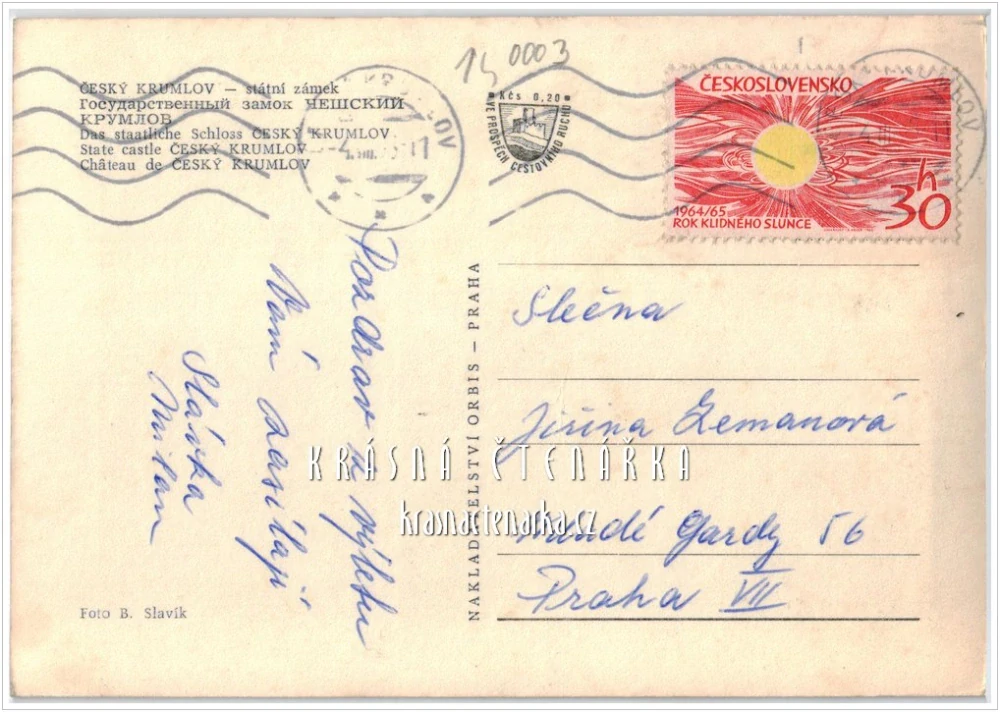 15 0003
ČESKÝ KRUMLOV — státní zámek
Государственный замок ЧЕШСКИЙ
КРУМЛОВ
Das staatliche Schloss ČESKÝ KRUMLOV
State castle ČESKÝ KRUMLOV
Château de ČESKÝ KRUMLOV
Kčs 0,20
VE PROSPĚCH CESTOVNÍHO RUCHU
ČESKOSLOVENSKO
1964/65
ROK KLIDNÉHO SLUNCE
30 h
Pozdrav z výletu
Vám zasílají
Slávka
Milan
NAKLADATELSTVÍ ORBIS — PRAHA
Slečna
Jiřina Zemanová
Gardy 56
Praha VII
KRÁSNÁ ČTENÁŘKA
krasnactenarka.cz
Foto B. Slavík